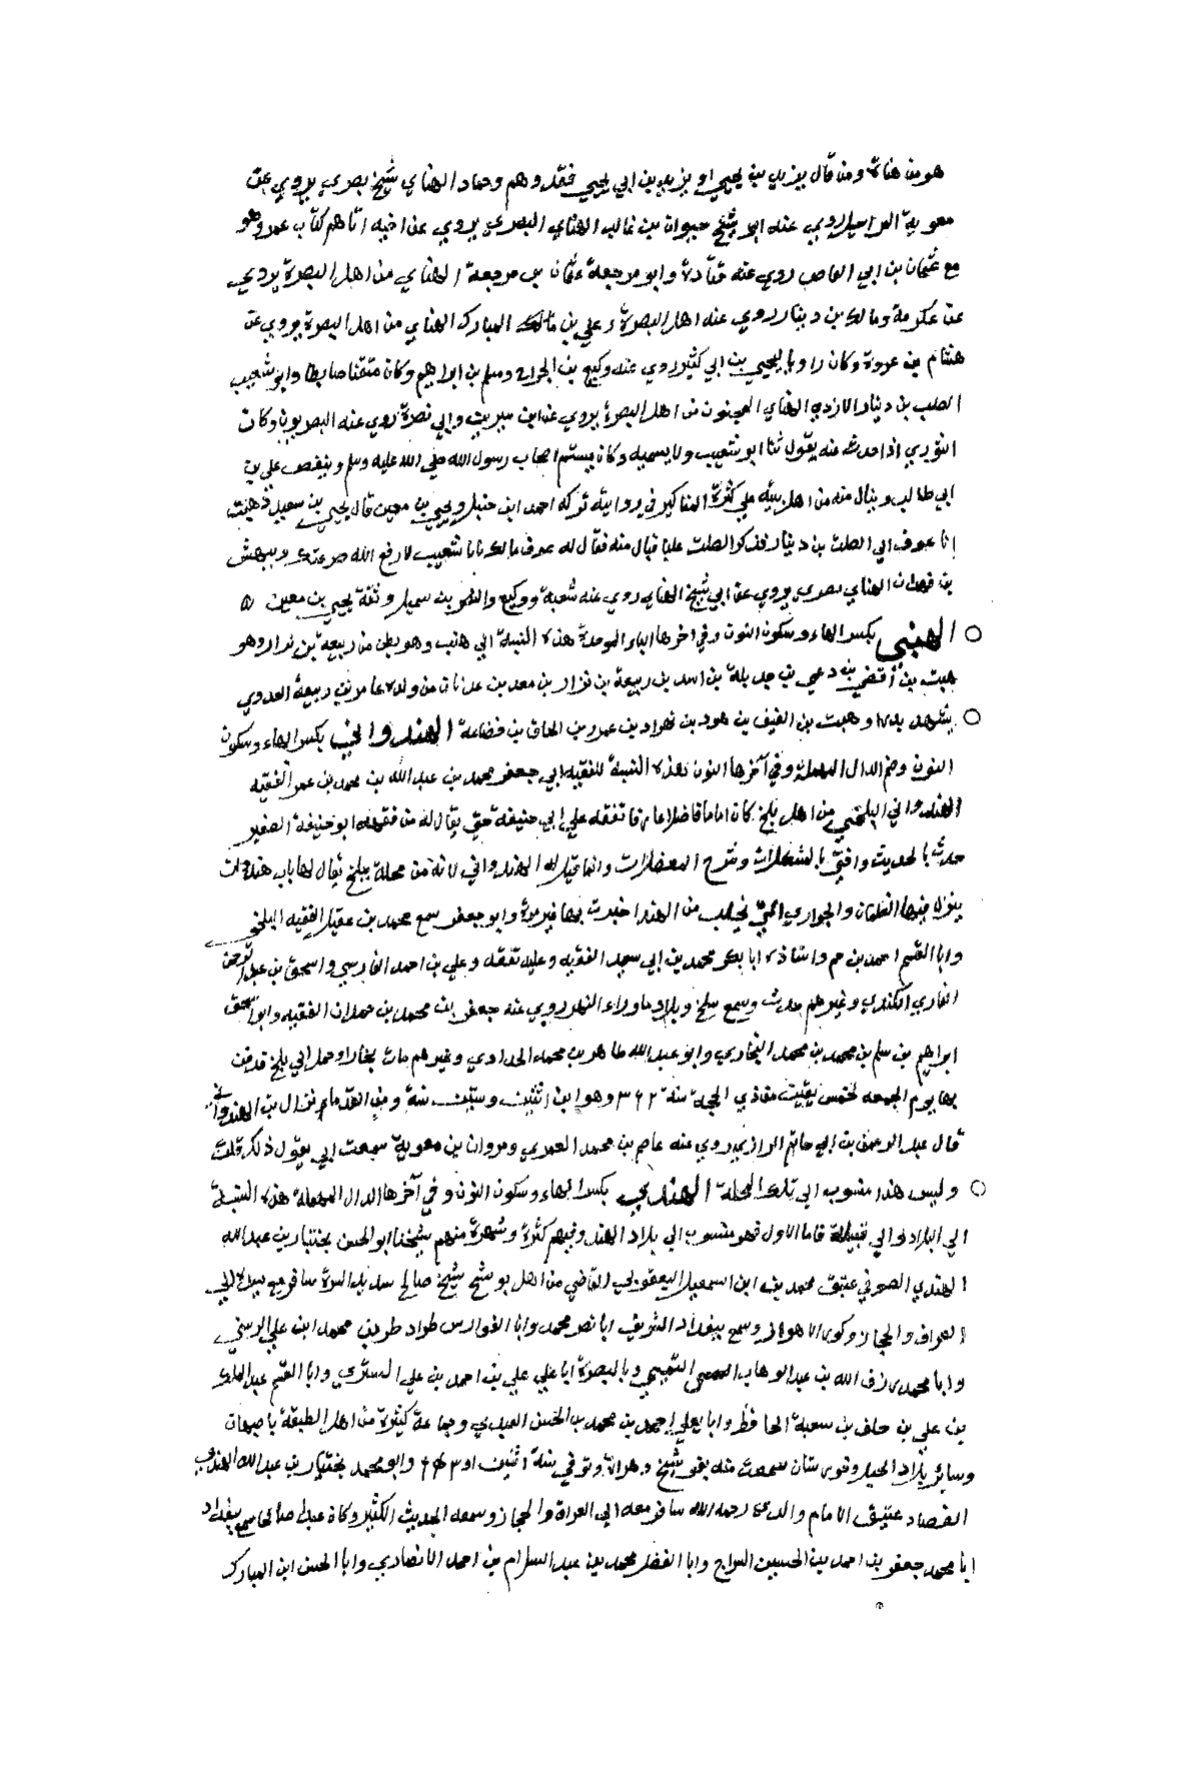 هو من هناة ومن قال يزيد بن يحيى او يزيد بن ابي يحيى فقد وهم وحماد الهناي شيخ بصري يروي عن
معوية روي عنه ابو شيخ حيوان بن خالد الهناي البصري يروي عن اخيه اتاهم كتاب عمر وهو
مع عثمان بن ابي العاص روي عنه قتادة وابو مرجعة عثمان بن مرجعة الهناي من اهل البصرة يروي
عن عكرمة ومالك بن دينار روي عنه اهل البصرة وعلي بن مالك المبارك الهناي من اهل البصرة يروي عن
هشام بن عروة وكان راويا ليحيى بن ابي كثير روي عنه وكيع بن الجراح ومسلم بن ابراهيم وكان متقنا ضابطا وابو شعيب
الصلت بن دينار الازدي الهناي المجنون من اهل البصرة يروي عن ابن سيرين وابي نضرة روي عنه البصريون وكان
الثوري اذا حدث عنه يقول ثنا ابو شعيب ولا يسميه وكان يشتم اصحاب رسول الله صلى الله عليه وسلم وينقص علي بن
ابي طالب وينال منه من اهل بيته علي كثرة المناكير في روايته تركه احمد ابن حنبل ويحيى بن معين قال يحيى بن سعيد ذهبت
انا عوف الي الصلت بن دينار فذكر الصلت عليا فنال منه فقال له عوف مالك يابا شعيب لا رفع الله صرعتك وبيهش
بن فهدان الهناي بصري يروي عن ابي شيخ الهناي روي عنه شعبة ووكيع والنضر بن شميل وثقة يحيى بن معين ه
○ الهنبي بكسر الهاء وسكون النون وفي اخرها الباء الموحدة هذه النسبة الي هنب وهو بطن من ربيعة بن نزار وهو
هنب بن أفصى بن دعمي بن جديلة بن اسد بن ربيعة بن نزار بن معد بن عدنان من ولده عامر بن ربيعة العدوي
○ شهد بدرا وهنب بن القين بن هود بن بهراء بن عمرو بن الحاف بن قضاعة الهندواني بكسر الهاء وسكون
النون وضم الدال المهملة وفي آخرها النون هذه النسبة للفقيه ابي جعفر محمد بن عبد الله بن محمد بن عمر الفقيه
الهندواني البلخي من اهل بلخ كان اماما فاضلا عارفا تفقه علي ابي حنيفة حتي يقال له من فقهه ابو حنيفة الصغير
حدث بالحديث وافتي بالمشكلات وشرح المعضلات وانما قيل له الهندواني لانه من محلة ببلخ يقال لها باب هندوان
ينزل فيها الغلمان والجواري التي تجلب من الهند اخبرت بها غير مرة وابو جعفر سمع محمد بن عقيل الفقيه البلخي
وابا القسم احمد بن حم واستاذه ابا بكر محمد بن ابي سعيد الفقيه وعليه تفقه وعلي بن احمد الفارسي واسحق بن عبد الرحمن
القاري الكندي وغيرهم حدث وسمع ببلخ وبلاد ما وراء النهر روي عنه جعفر بن محمد بن حمدان الفقيه وابو اسحق
ابراهيم بن سلم بن محمد بن محمد البخاري وابو عبد الله طاهر بن محمد الحدادي وغيرهم مات ببخارا وحمل الي بلخ فدفن
بها يوم الجمعه لخمس بقيت من ذي الحجة سنة ٣٦٢ وهو ابن اثنين وستين سنة ومن القدماء نزال بن الهندواني
قال عبد الرحمن بن ابي حاتم الرازي روي عنه عاصم بن محمد العمري ومروان بن معوية سمعت ابي يقول ذلك قلت
○ وليس هذا منسوب الي تلك المحلة الهندي بكسر الهاء وسكون النون وفي آخرها الدال المهملة هذه النسبة
الي البلاد والي قبيلة فاما الاول فهو منسوب الي بلاد الهند وفيهم كثرة وشهرة منهم شيخنا ابو الحسن بختيار بن عبد الله
الهندي الصوفي عتيق محمد بن ابن اسمعيل اليعقوبي القاضي من اهل بوشنج شيخ صالح سديد السيرة سافر مع سيده الي
العراق والحجاز وكور الاهواز وسمع ببغداد الشريف ابا نصر محمد وابا الفوارس طراد طربن محمد ابن علي الزينبي
وابا محمد رزق الله بن عبد الوهاب التميمي وبالبصرة ابا علي علي بن احمد بن علي التستري وابا القسم عبد الملك
بن علي بن خلف بن شعبة الحافظ وابا يعلي احمد بن محمد بن الحسن العبدي وجماعة كثيرة من اهل الطبقة باصبهان
وسائر بلاد الجبل وخوزستان سمعت منه بفوشنج وهراة وتوفي سنة اثنين او ٥٤٣ وابو محمد بختيار بن عبد الله الهندي
الفصاد عتيق الامام والدي رحمه الله سافر معه الي العراق والحجاز وسمعه الحديث الكثير وكان عبدا صالحا سمع ببغداد
ابا محمد جعفر بن احمد بن الحسين السراج وابا الفضل محمد بن عبد السلام بن احمد الانصاري وابا الحسن ابن المبارك